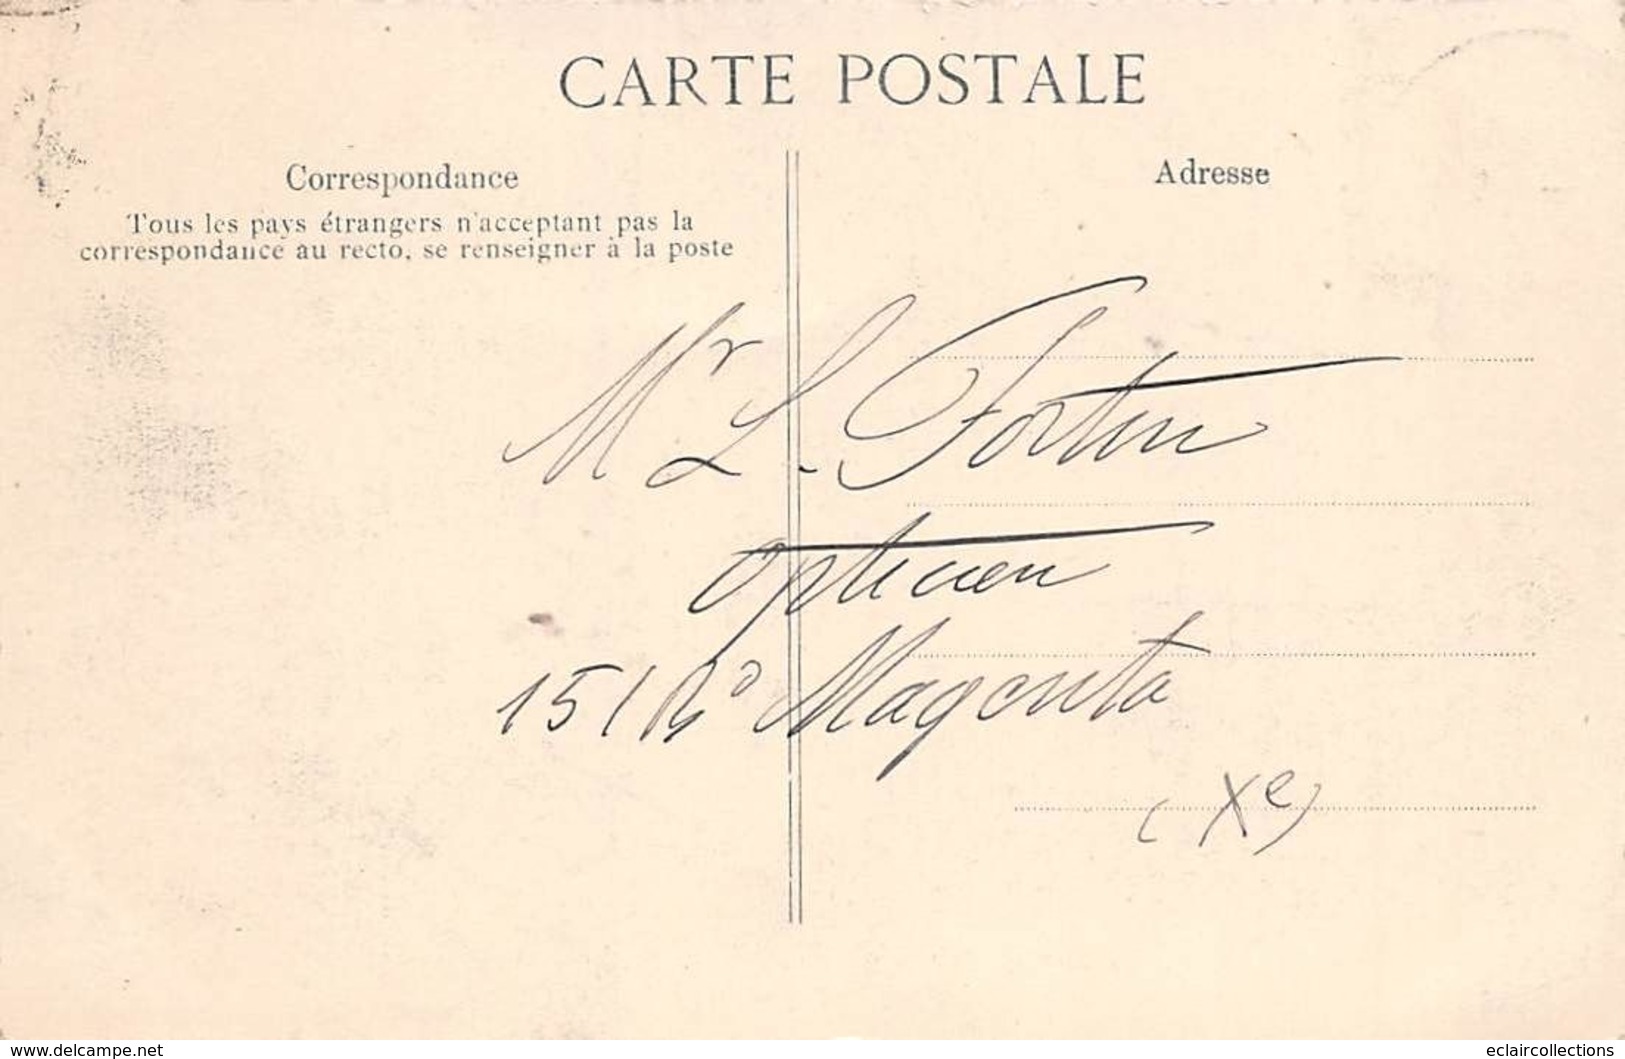 CARTE POSTALE
Correspondance
Tous les pays étrangers n'acceptant pas la
correspondance au recto, se renseigner à la poste
Adresse
Mr L. Fortin
Opticien
151 Bd Magenta
(Xe)
www.delcampe.net
eclaircollections